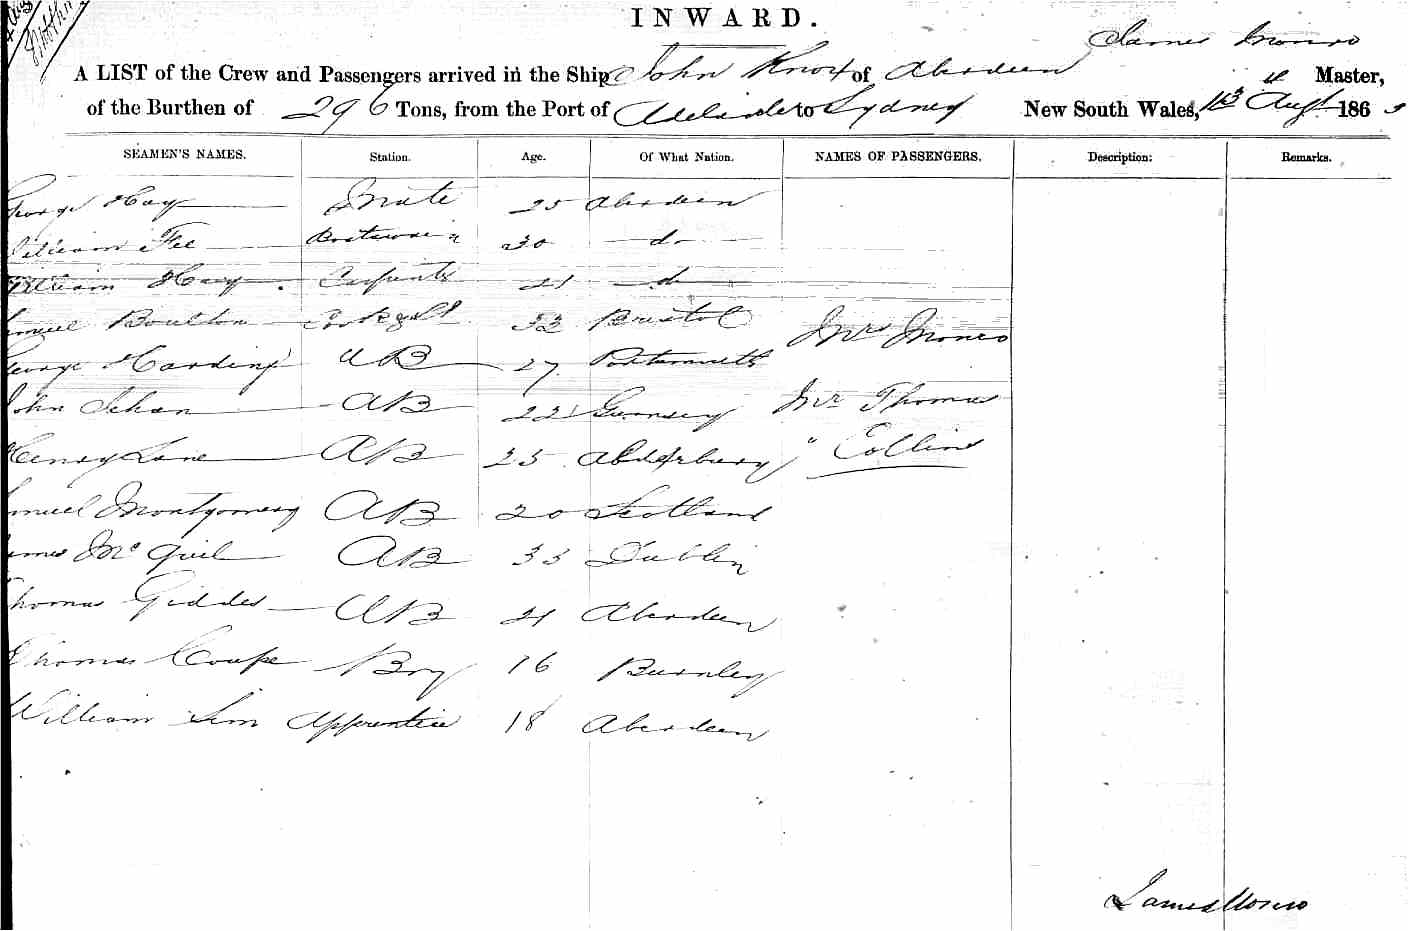 INWARD.
James Monro
A LIST of the Crew and Passengers arrived in the Ship John Knox of Aberdeen Master,
of the Burthen of 296 Tons, from the Port of Adelaide to Sydney New South Wales, Augt 1863
SEAMEN'S NAMES. Station. Age. Of What Nation. NAMES OF PASSENGERS. Description: Remarks.
George Hay Mate 25 Aberdeen
William Fee 30 do
William Hay Carpenter 21 do
Samuel Boulton Cook & St 32 Bristol Mrs Monro
George Harding AB 27 Portsmouth
John Sehan AB 22 Guernsey Mr Thomas
Henry Lane AB 25 " Collins
Samuel Montgomery AB 20 Scotland
James Mc Quil AB 35 Dublin
Thomas Geddes AB 21 Aberdeen
Thomas Coupe Boy 16 Burnley
William Sim Apprentice 18 Aberdeen
James Monro